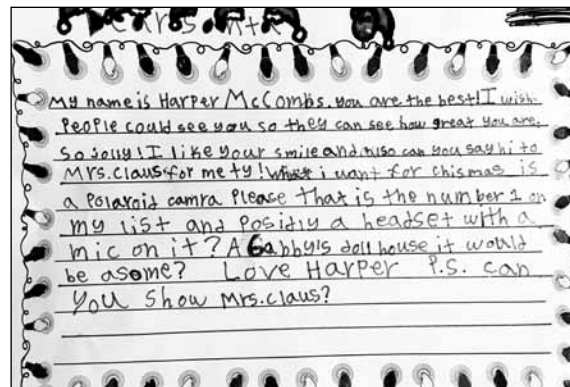 Dear Santa
My name is Harper McCombs. you are the best! I wish
People could see you so they can see how great you are.
So jolly! I like your smile and also can you say hi to
Mrs.claus for me ty! What i want for chismas is
a Polaroid camra Please That is the number 1 on
my list and Posidiy a headset with a
mic on it? A Gabby's doll house it would
be asome? Love Harper P.S. can
you Show Mrs.claus?